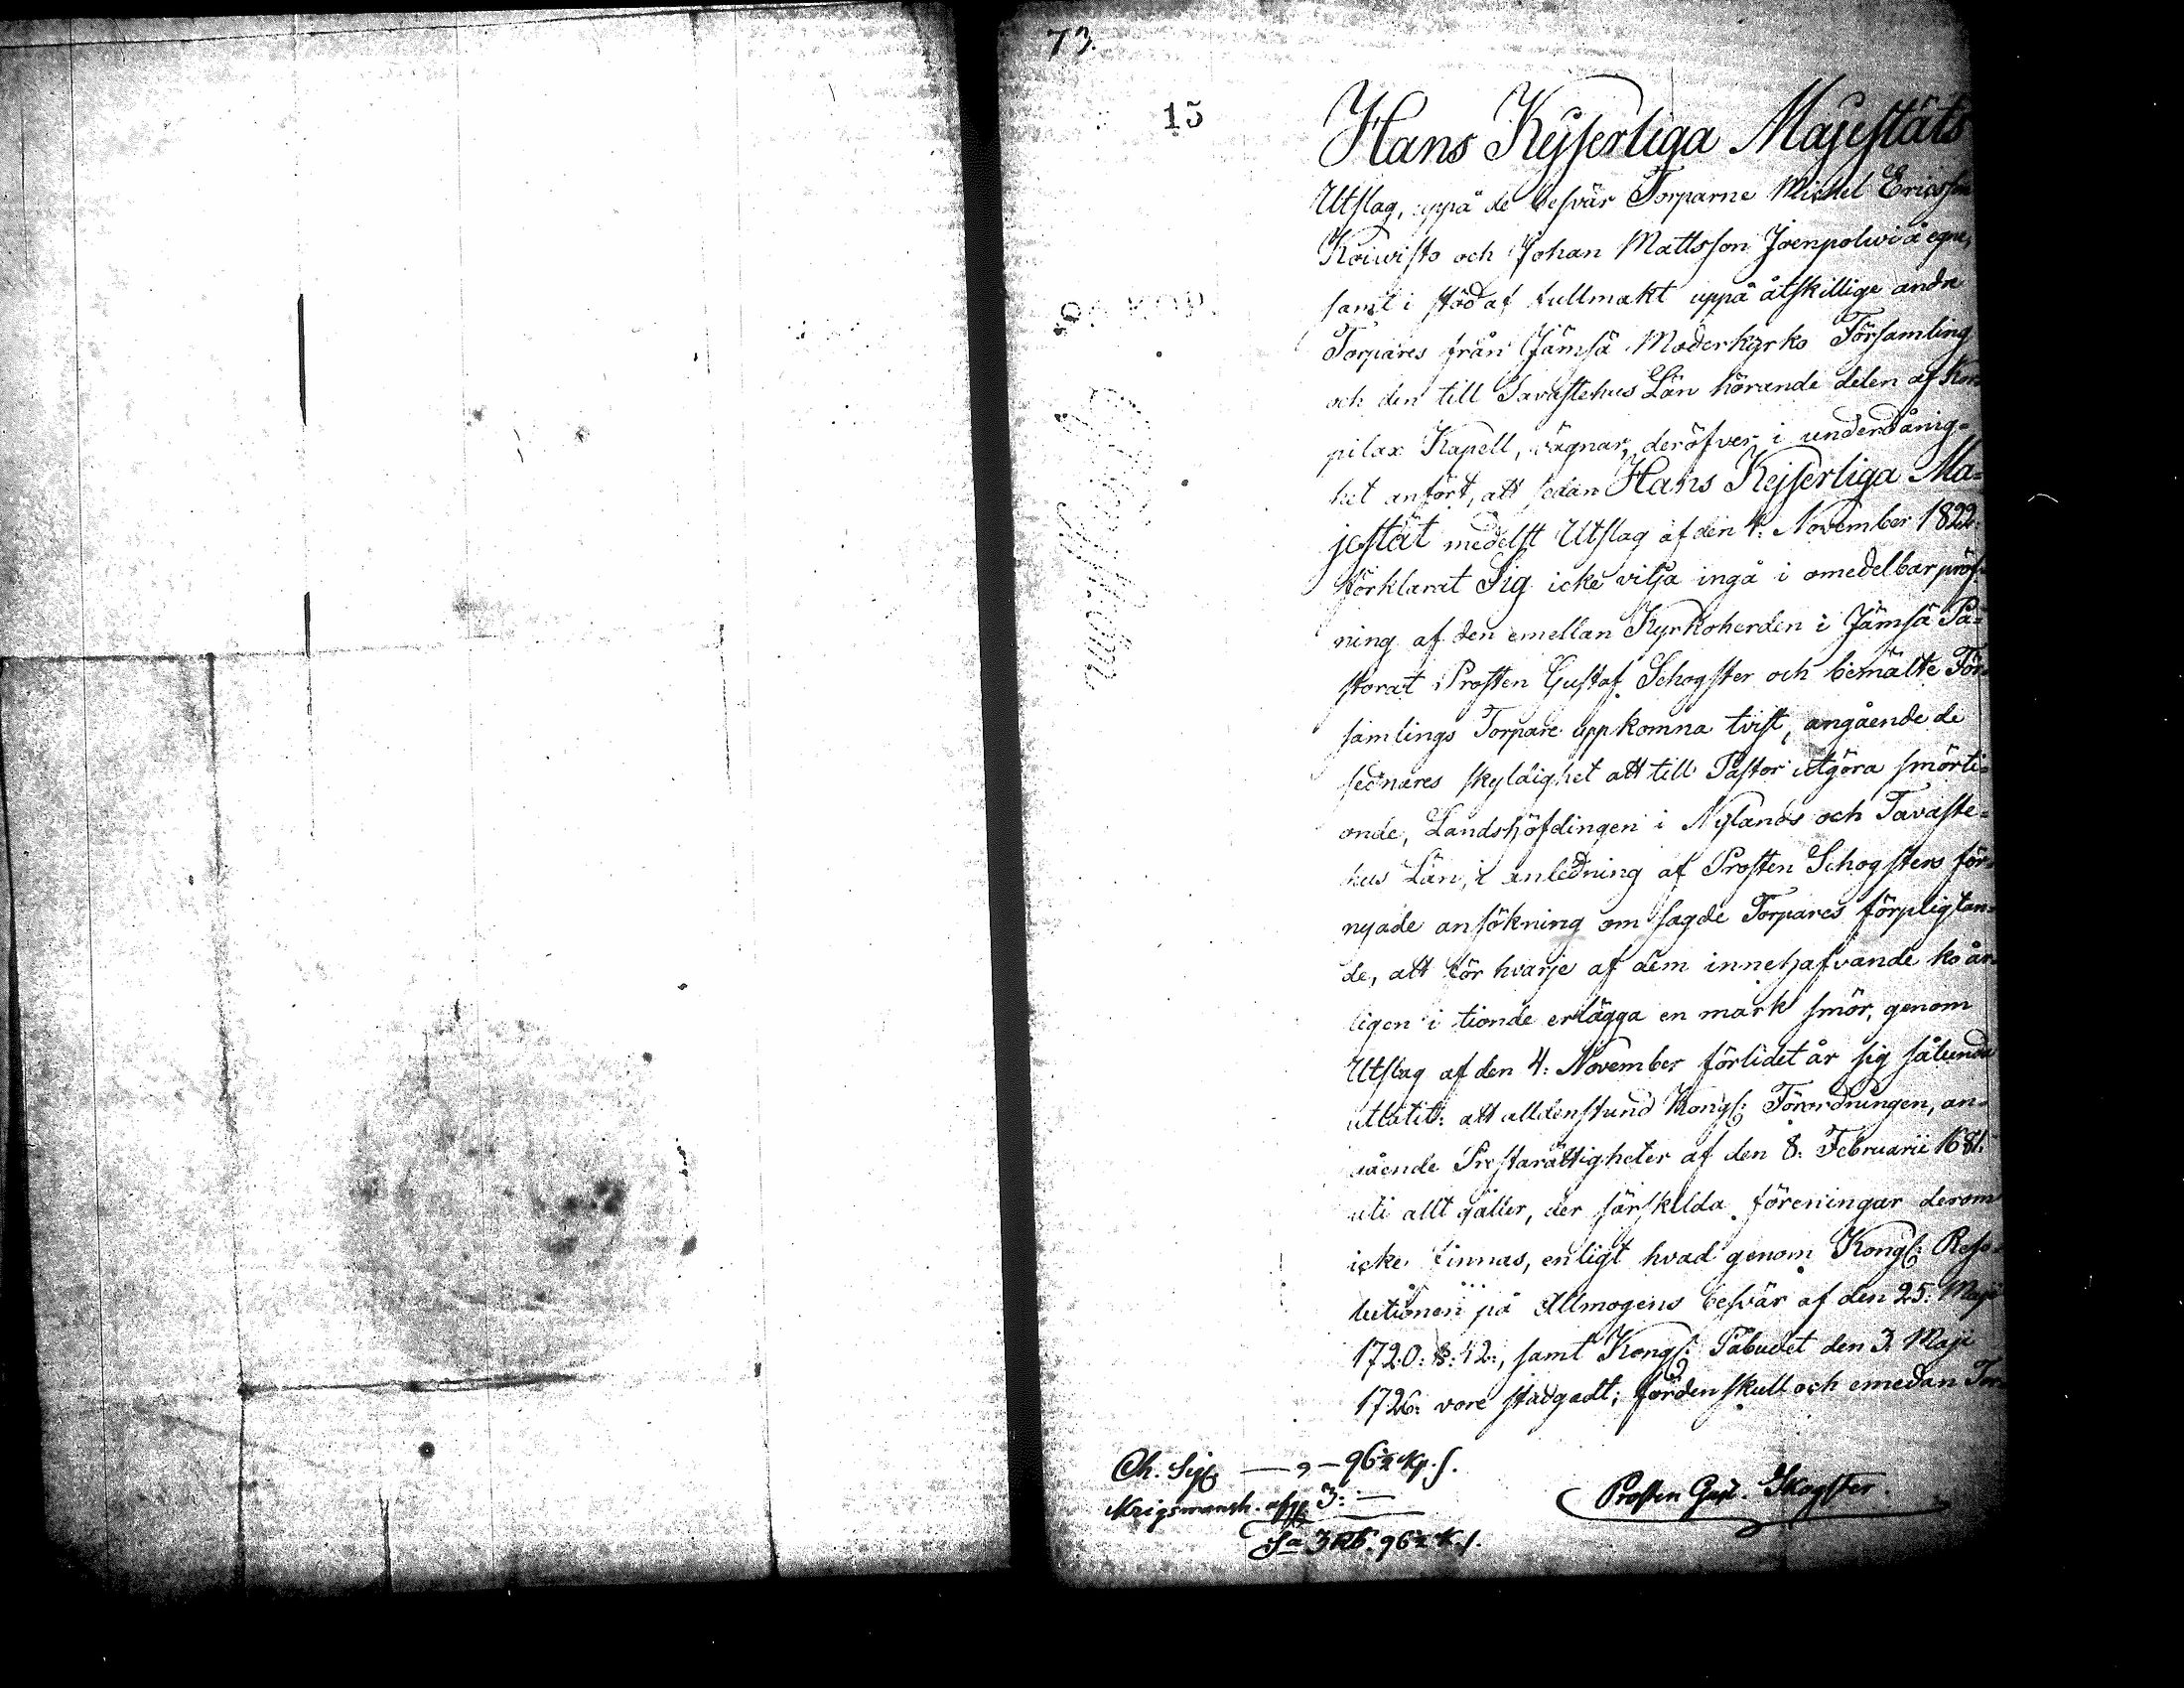 73.
15
Hans Kejserliga Majestäts
Utslag, uppå de besvär Torparne Michel Ericsson
Koiwisto och Johan Mattsson Joenpolwi å egne,
samt i stöd af fullmakt uppå åtskillige andre
Torpares från Jämsä Moderkyrko Församling
och den till Tavastehus Län hörande delen af Kor-
pilax Kapell, vägnar, deröfver i underdånig-
het anfört, att sedan Hans Kejserliga Ma-
jestät medelst Utslag af den 4: November 1822:
förklarat Sig icke vilja ingå i omedelbar pröf-
ning af den emellan Kyrkoherden i Jämsä Pa-
storat Prosten Gustaf Schogster och bemälte För-
samlings Torpare uppkomna tvist, angående de
sednares skyldighet att till Pastor utgöra smörti-
onde, Landshöfdingen i Nylands och Tavaste-
hus Län, i anledning af Prosten Schogsters för-
nyade ansökning om sagde Torpares förpligtan-
de, att för hvarje af dem innehafvande ko år-
ligen i tionde erlägga en mark smör, genom
Utslag af den 4: November förlidet år sig sålunda
utlåtit: att alldenstund Kongl: Förordningen, an-
gående Prestarättigheter af den 8: Februarii 1681:
uti allt gäller, der särskilda föreningar derom
icke finnas, enligt hvad genom Kongl: Reso-
lutionen på Allmogens besvär af den 25: Maji
1720: §: 42:, samt Kongl: Påbudet den 3: Maji
1726: vore stadgadt; fördenskull och emedan Tor-
Ch. Sig — 9 — 96½ Kp. s.
Krigsmansh. afg 3: —
Sa 3 Rb. 96½ K. s.
Prosten Gust. Skogster.